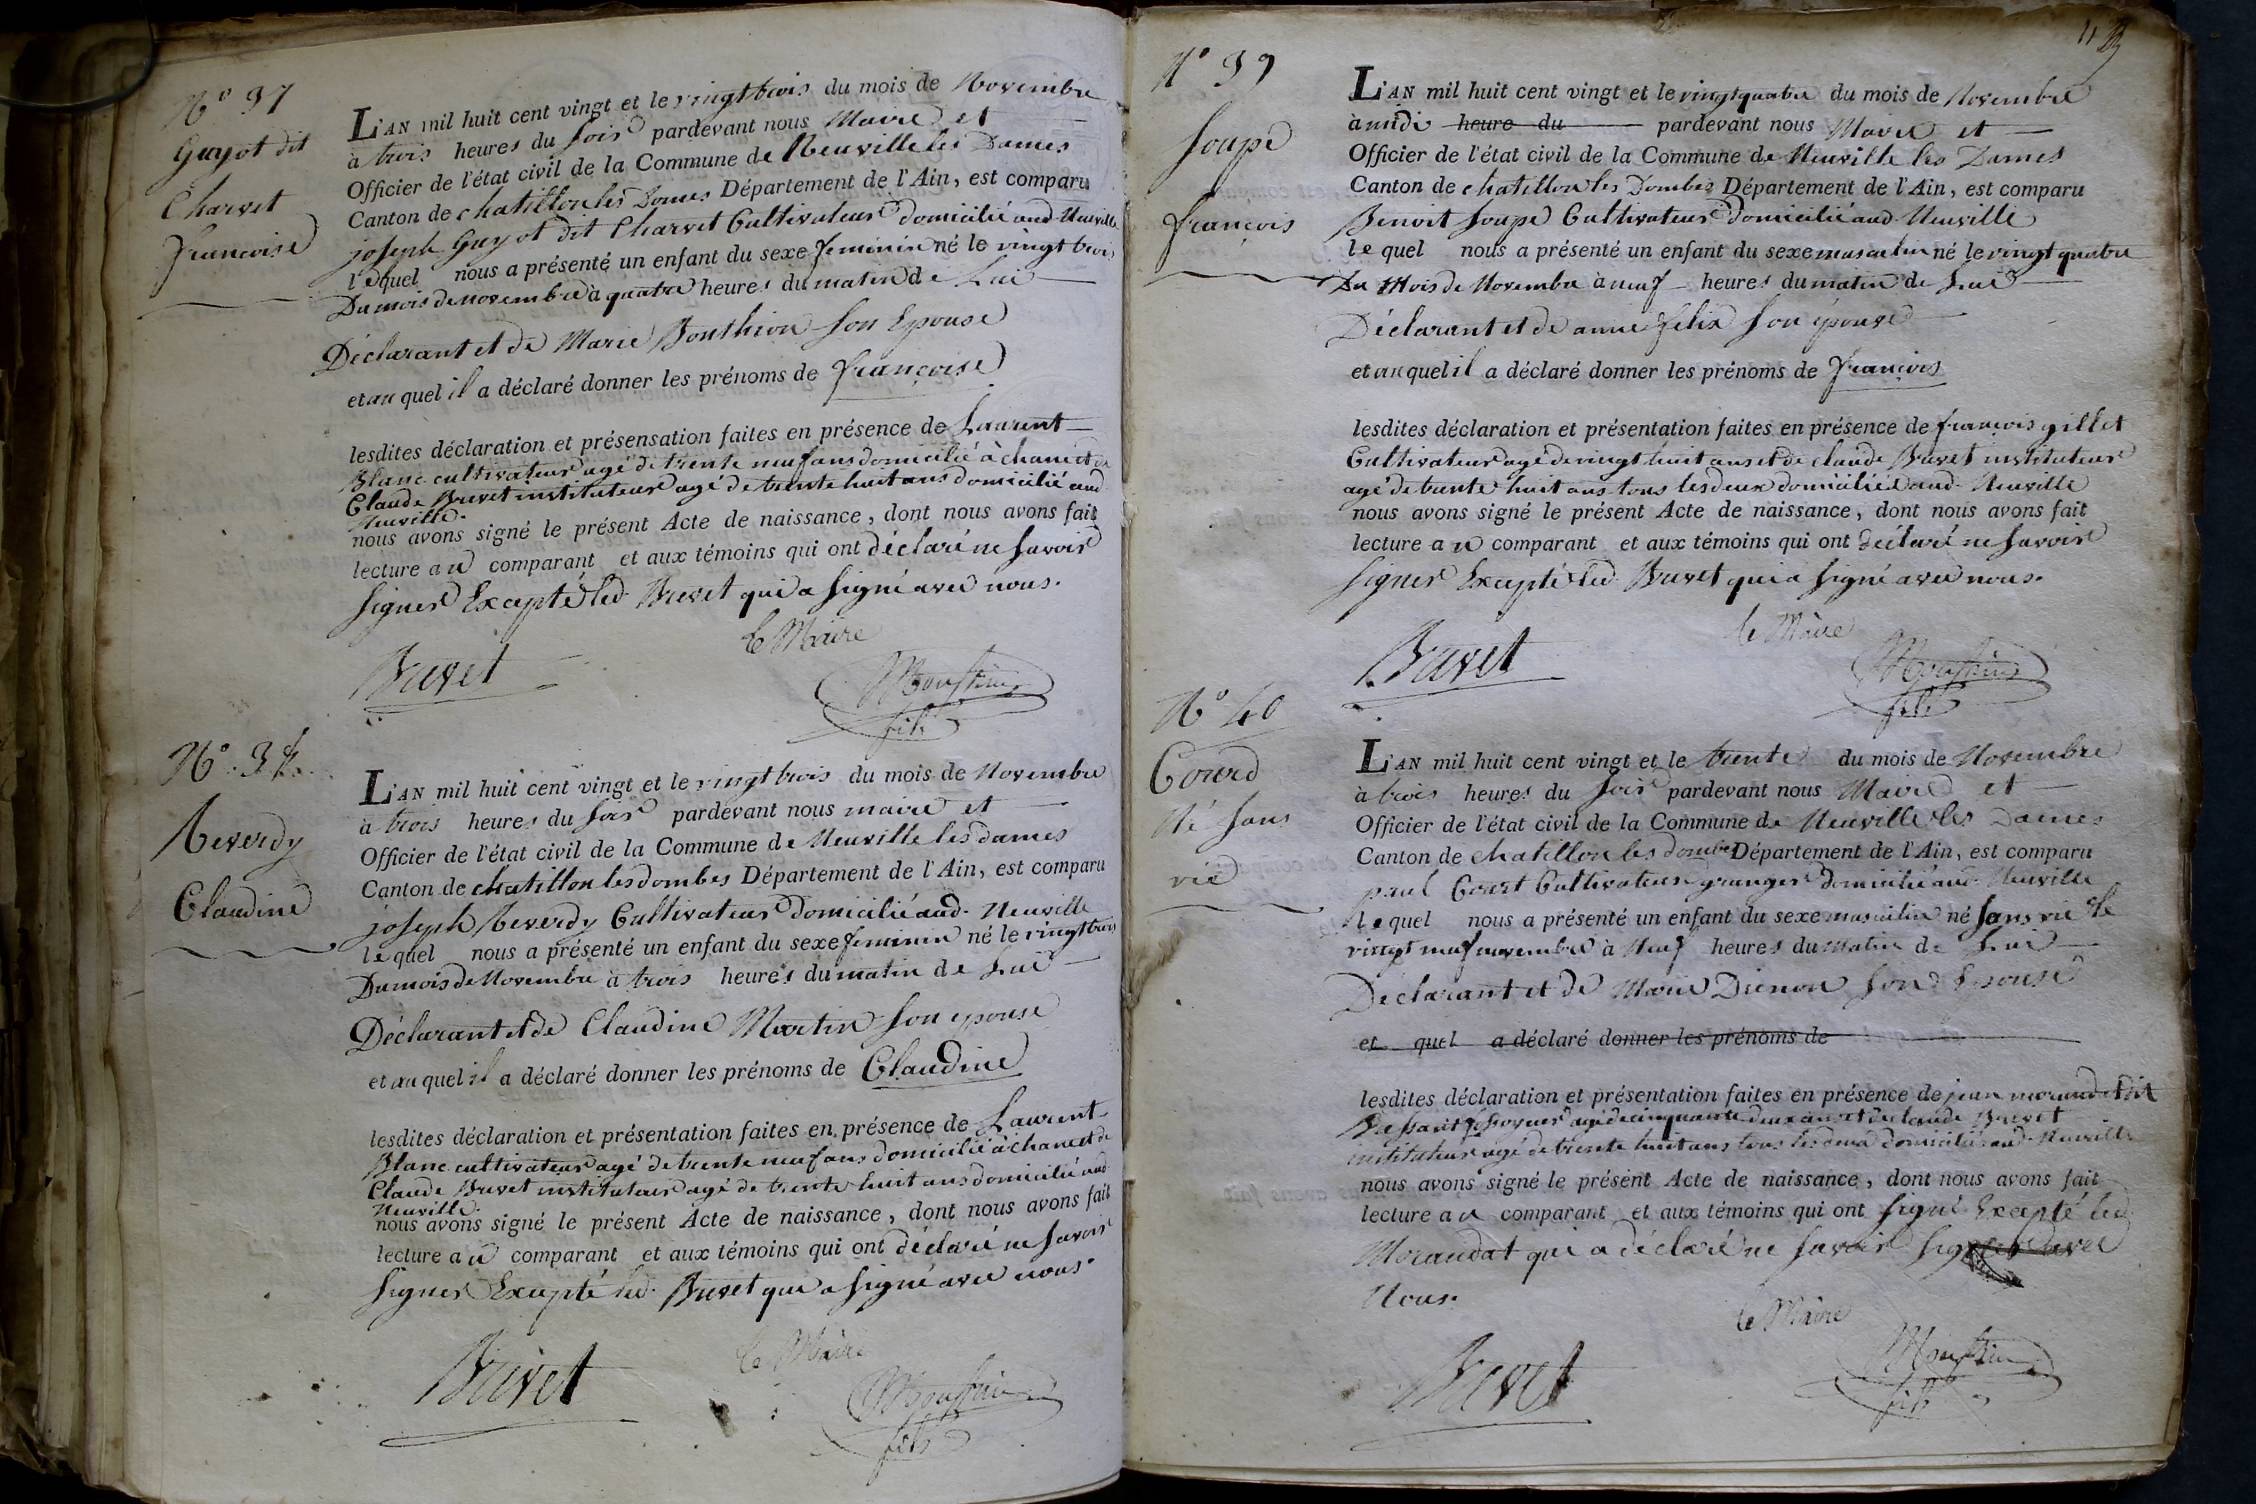 N° 37
Guyot dit
Charvet
francoise
L'AN mil huit cent vingt et le vingt trois du mois de Novembre
à trois heures du soir pardevant nous Maire et
Officier de l'état civil de la Commune de Neuville les Dames
Canton de chatillon les Domes Département de l'Ain, est comparu
joseph Guyot dit Charvet Cultivateur domicilié aud. Neuville
lequel nous a présenté un enfant du sexe feminin né le vingt trois
Du mois de novembre à quatre heures du matin de Lui
Déclarant et de Marie Bonthion son Epouse
et au quel il a déclaré donner les prénoms de françoise
lesdites déclaration et présensation faites en présence de Laurent
Blanc cultivateur agé de trente neuf ans domicilié à chanet de
Claude Buvet instituteur agé de trente huit ans domicilié aud.
Neuville.
nous avons signé le présent Acte de naissance, dont nous avons fait
lecture au comparant et aux témoins qui ont déclaré ne savoir
signer Excepté led. Buvet qui a signé avec nous.
le Maire
Buvet
fils
N° 38.
Reverdy
Claudine
L'AN mil huit cent vingt et le vingt trois du mois de Novembre
à trois heures du soir pardevant nous maire et
Officier de l'état civil de la Commune de Neuville les dames
Canton de chatillon les dombes Département de l'Ain, est comparu
joseph Reverdy Cultivateur domicilié aud. Neuville
lequel nous a présenté un enfant du sexe feminin né le vingt trois
Du mois de Novembre à trois heures du matin de Lui
Déclarant et de Claudine Martin son epouse
et au quel il a déclaré donner les prénoms de Claudine
lesdites déclaration et présentation faites en présence de Laurent
Blanc cultivateur agé de trente neuf ans domicilié à chanet de
Claude Buvet instituteur agé de trente huit ans domicilié aud.
Neuville.
nous avons signé le présent Acte de naissance, dont nous avons fait
lecture au comparant et aux témoins qui ont déclaré ne savoir
signer Excepté led. Buvet qui a signé avec nous.
le Maire
Buvet
fils
N° 39
Soupe
françois
L'AN mil huit cent vingt et le vingt quatre du mois de Novembre
à midi heure du pardevant nous Maire et
Officier de l'état civil de la Commune de Neuville les Dames
Canton de chatillon les Dombes Département de l'Ain, est comparu
Benoit Soupe Cultivateur domicilié aud. Neuville
lequel nous a présenté un enfant du sexe masculin né le vingt quatre
Du Mois de Novembre à neuf heures du matin de Lui
Déclarant et de anne felix son épouse
et au quel il a déclaré donner les prénoms de françois
lesdites déclaration et présentation faites en présence de françois gillet
Cultivateur agé de vingt huit ans et de claude Buvet instituteur
agé de trente huit ans tous les deux domiciliés aud. Neuville
nous avons signé le présent Acte de naissance, dont nous avons fait
lecture au comparant et aux témoins qui ont déclaré ne savoir
signer Excepté led. Buvet qui a signé avec nous.
le Maire
Buvet
fils
N° 40
Courd
Né sans
vie
L'AN mil huit cent vingt et le trente du mois de Novembre
à trois heures du soir pardevant nous Maire et
Officier de l'état civil de la Commune de Neuville les Dames
Canton de chatillon les dombes Département de l'Ain, est comparu
paul Court Cultivateur granger domicilié aud. Neuville
lequel nous a présenté un enfant du sexe masculin né sans vie le
vingt neuf novembre à Neuf heures du matin de Lui
Déclarant et de Marie Dienon son Epouse
et quel a déclaré donner les prénoms de
lesdites déclaration et présentation faites en présence de jean morandat dit
agé de cinquante deux ans et de claude Buvet
instituteur agé de trente huit ans tous les deux domiciliés aud. Neuville
nous avons signé le présent Acte de naissance, dont nous avons fait
lecture au comparant et aux témoins qui ont signé Excepté led.
Morandat qui a déclaré ne savoir signer avec
Nous.
le Maire
Buvet
fils